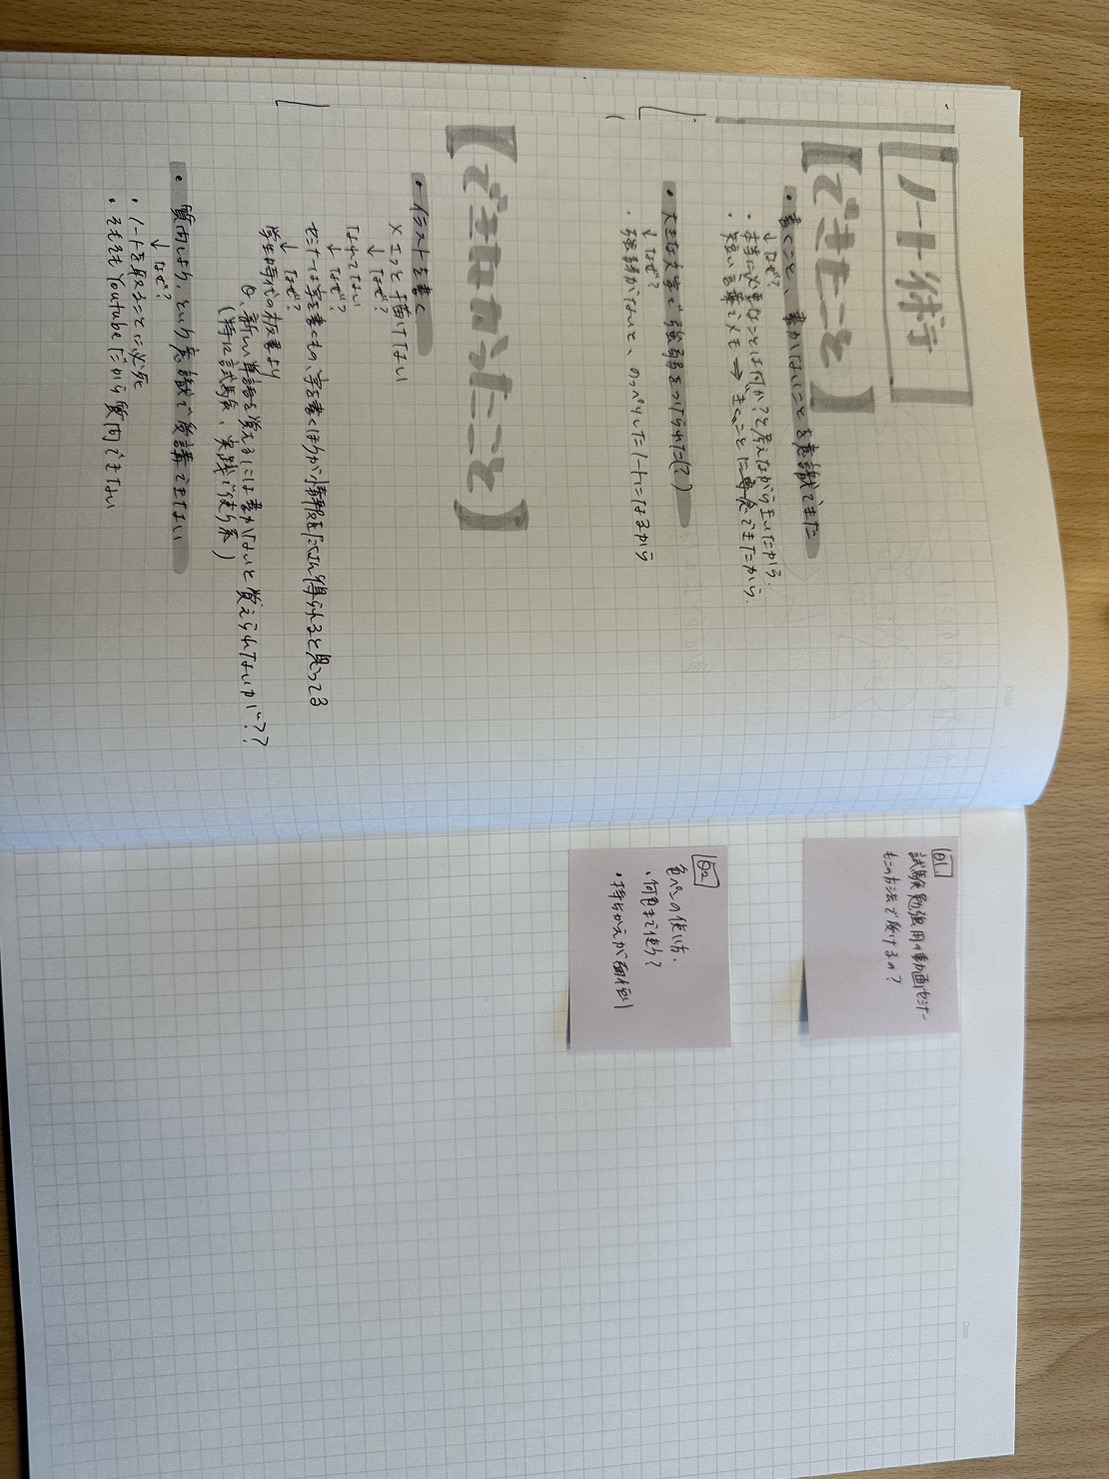 ノート術
【できたこと】
・書くこと、書かないことを意識できた
↓なぜ?
・本当に必要なことは何か?と考えながら王いたから.
・短い言葉でメモ → きくことに専念できたから.
・大きな文字で強弱をつけられた(?)
↓なぜ?
・強弱がないと、のっぺりしたノートになるから
【できなかったこと】
・イラストを書く
×エっと描けてない
↓なぜ?
なれてない
↓なぜ?
セミナーは字を書くもの、字を書くほうが情報をたくさん得られると思ってる
↓なぜ?
学生時代の板書より
Q、新しい単語を覚えるには書かないと覚えられないかも??
(特に試験、実践で使う系)
・質問しよう、という意識で受講できてない
↓なぜ?
・ノートを取ることに必死
・そもそもYoutubeだから質問できない
Q1.
試験勉強用の動画セミナー
もこの方法で受けるの?
Q2
色ペンの使い方.
・何色まで使う?
・持ちかえが面倒
Date
Date